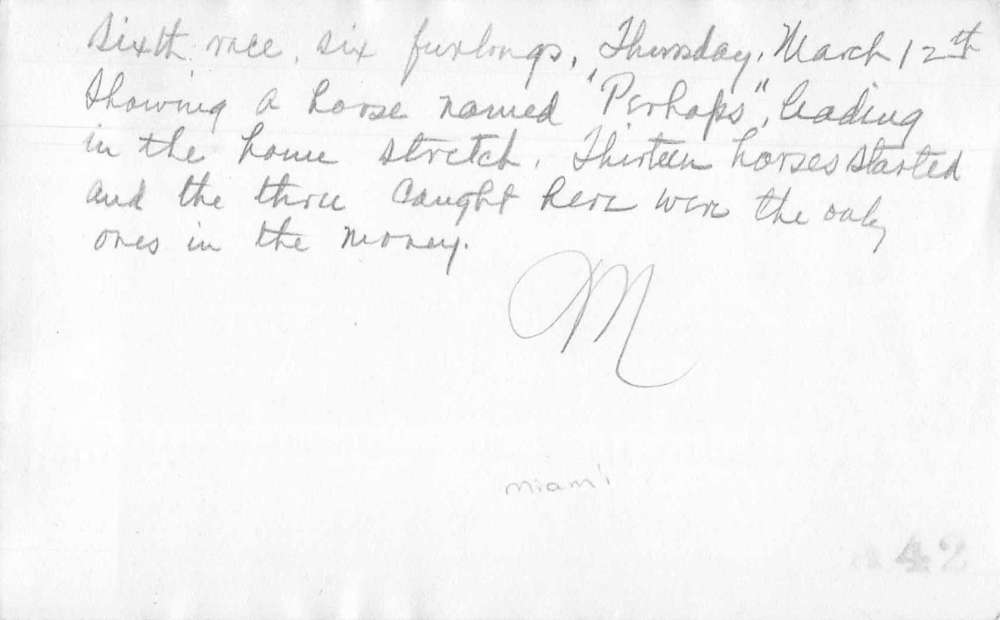 Sixth race, six furlongs, Thursday, March 12th
showing a horse named "Perhaps", leading
in the home stretch. Thirteen horses started
and the three caught here were the only
ones in the money.
M
Miami
42